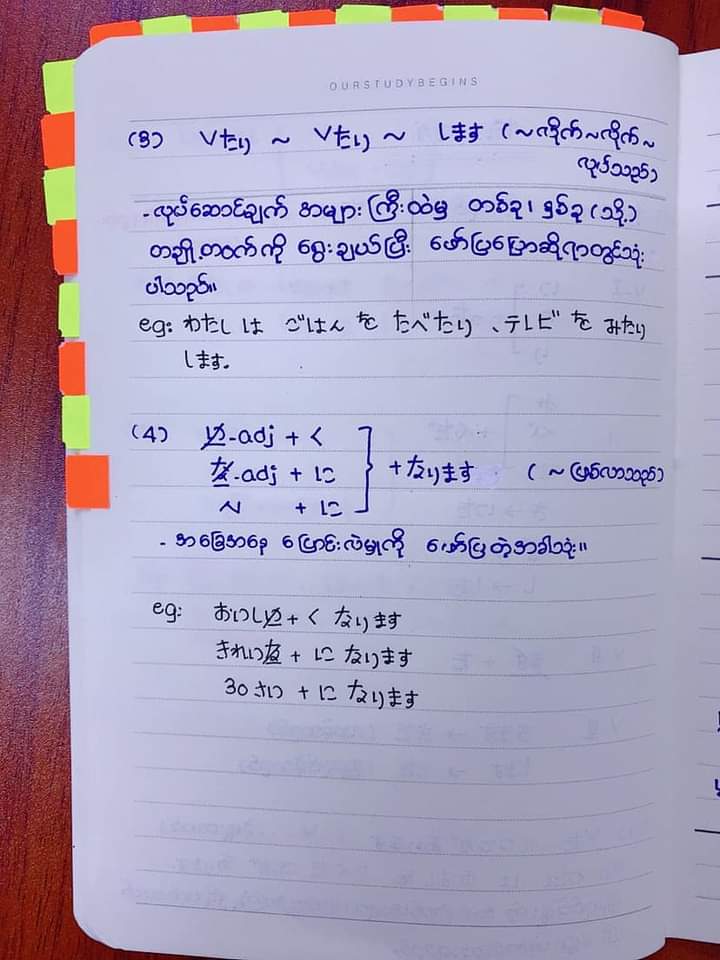 OURSTUDYBEGINS
(3) Vたり ~ Vたり ~ します (~လိုက်~လိုက်~
လုပ်သည်)
- လုပ်ဆောင်ချက် အများကြီးထဲမှ တစ်ခု၊ နှစ်ခု (သို့)
တချို့တဝက်ကို ရွေးချယ်ပြီး ဖော်ပြပြောဆိုရာတွင်သုံး
ပါသည်။
eg: わたし は ごはん を たべたり、テレビ を みたり
します。
(4) い-adj + く
な-adj + に
N + に
+ なります (~ ဖြစ်လာသည်)
- အခြေအနေ ပြောင်းလဲမှုကို ဖော်ပြတဲ့အခါသုံး။
eg: おいしい + く なります
きれいな + に なります
30 さい + に なります